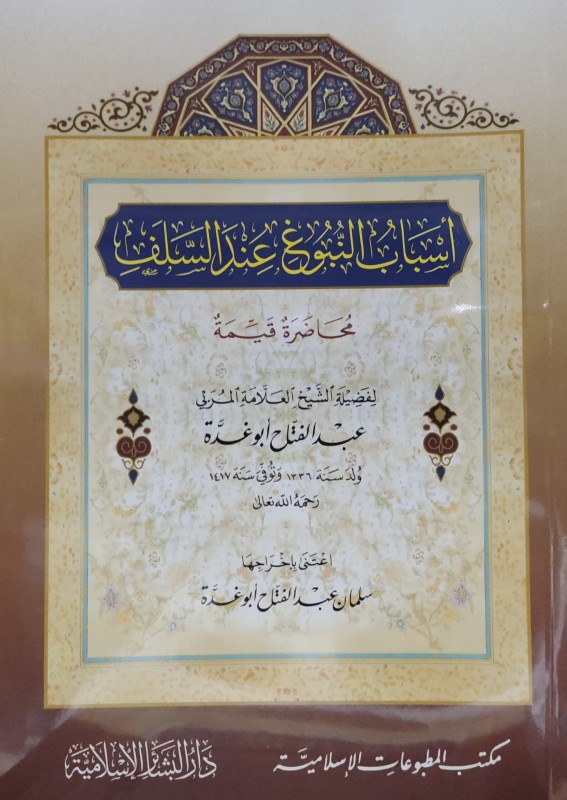 أَسْبَابُ النُّبُوغِ عِنْدَ السَّلَفِ
مُحَاضَرَةٌ قَيِّمَةٌ
لِفَضِيلَةِ الشَّيْخِ العَلَّامَةِ المُرَبِّي
عبد الفتاح أبو غدّة
وُلِدَ سَنَة ١٣٣٦ وَتُوُفِّيَ سَنَة ١٤١٧
رَحِمَهُ اللّٰه تعَالىٰ
اعْتَنَى بِإِخْرَاجِهَا
سلمان عبد الفتاح أبو غدّة
مكتب المطبوعات الإسلاميّة
دَارُ البَشَائِرِ الإِسْلَامِيَّة